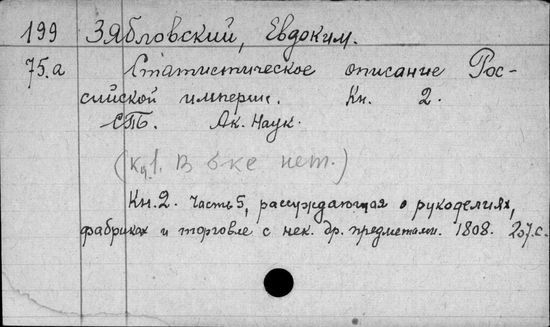 199 Зябловский, Евдоким.
75.а Статистическое описание Рос-
сийской империи. Кн. 2.
СПб. Ак. Наук.
(Кн. 1. в б-ке нет.)
Кн. 2. Часть 5, рассуждающая о рукоделиях,
фабриках и торговле с нек. др. предметами. 1808. 207.с.